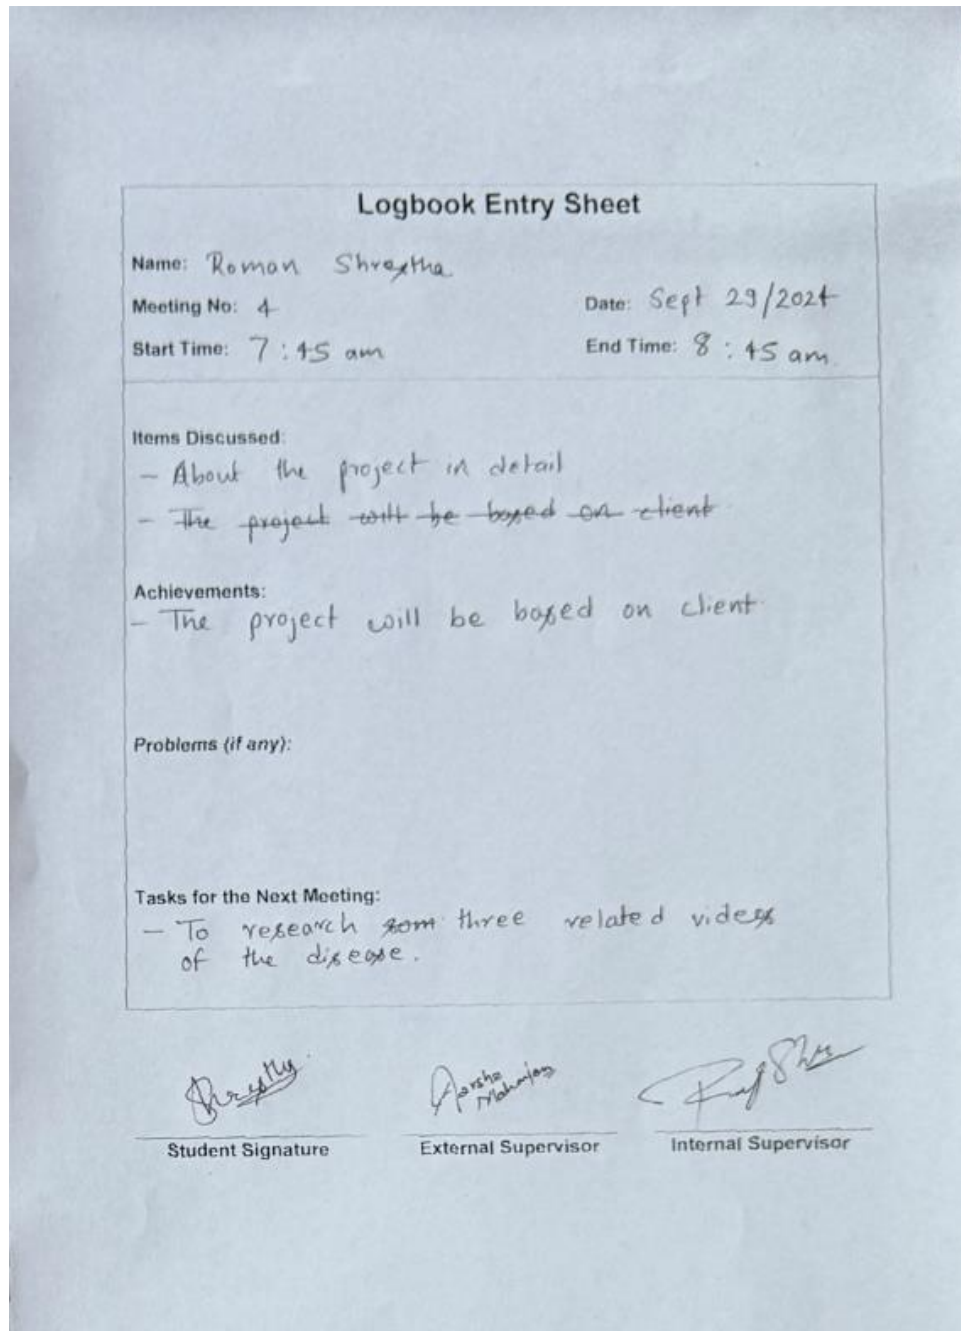 Logbook Entry Sheet
Name: Roman Shrestha
Meeting No: 4
Date: Sept 29/2024
Start Time: 7:45 am
End Time: 8:45 am.
Items Discussed:
- About the project in detail
- The project will be based on client
Achievements:
- The project will be based on client
Problems (if any):
Tasks for the Next Meeting:
- To research som three related videos
of the disease.
Shrestha
Aarsha
Maharjan
Student Signature
External Supervisor
Internal Supervisor